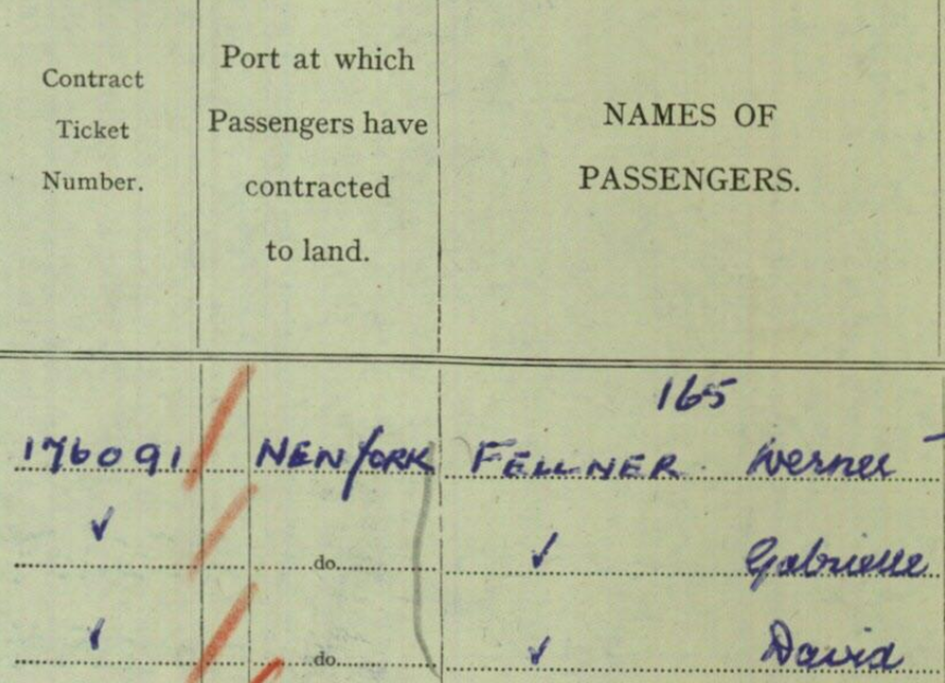 Contract
Ticket
Number.
Port at which
Passengers have
contracted
to land.
NAMES OF
PASSENGERS.
165
176091 NEW YORK FELLNER Werner
✓ do. ✓ Gabrielle
✓ do. ✓ David